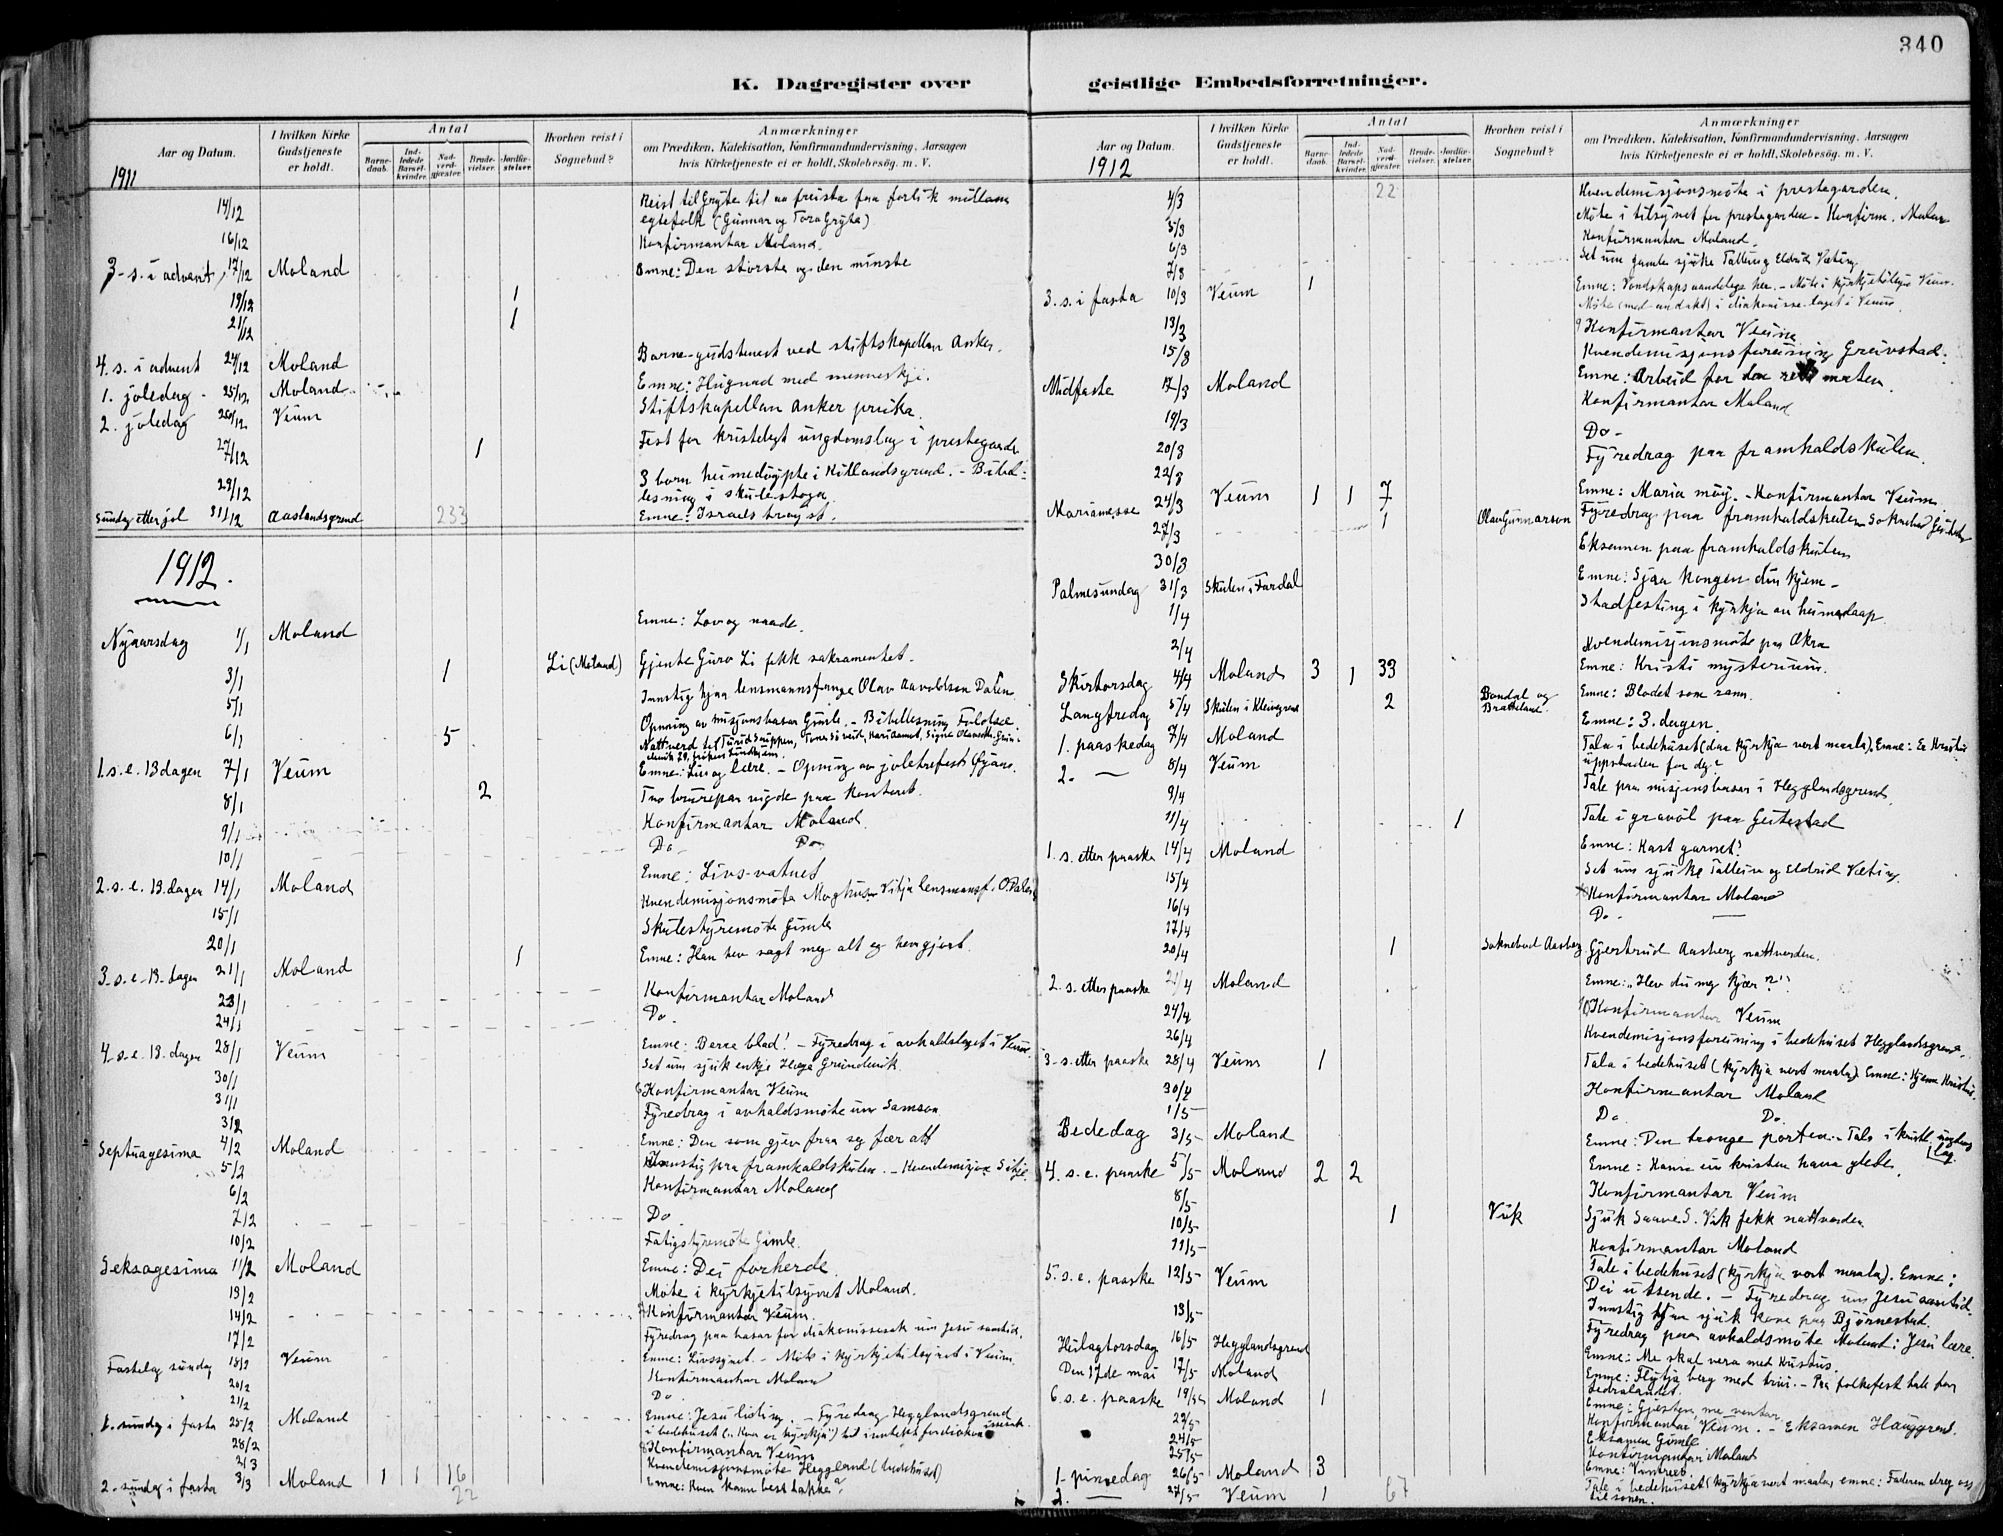 340
K. Dagregister over geistlige Embedsforretninger.
Aar og Datum.
I hvilken Kirke Gudstjeneste er holdt.
Antal
Barnedaab.
Indledede Barselkvinder.
Nadverdgjæster.
Brudevielser.
Jordfæstelser.
Hvorhen reist i Sognebud?
Anmærkninger
om Prædiken, Katekisation, Konfirmandundervisning, Aarsagen
hvis Kirketjeneste ei er holdt, Skolebesøg. m. V.
1911
14/12 Reist til Gryte til aa freista faa forlik millom
egtefolk (Gunnar og Tora Gryte)
16/12 Konfirmantar Moland.
3- s. i advent 17/12 Moland Emne: Den største og den minste
19/12 1
21/12 1
4. s. i advent 24/12 Moland Barne-gudstenest ved stiftskapellan Anker.
1. joledag 25/12 Moland Emne: Hugnad med menneskje.
2. joledag 26/12 Veum Stiftskapellan Anker preika.
27/12 1 Fest for kristelegt ungdomslag i prestegarden
29/12 3 born heimedøypte i Kitlandsgrend. - Bibel-
lesning i skulestoga
Sundag etter jol 31/12 Aaslandsgrend 233 Emne: Israels trøyst.
1912.
Nyaarsdag 1/1 Moland Emne: Lov og naade.
3/1 1 Li (Moland) Gjente Guro Li fekk sakramentet.
5/1 Innstig hjaa lensmannsfange Olav Aavoldsen Dalen
6/1 5 Opning av misjonsbasar Gimle. - Bibellesning
Nattverd til
1. s. e. 13 dagen 7/1 Veum Emne: Liv og lære. - Opning av joletrefest Øygarr.
8/1 2 Tvo brurepar vigde paa kontoret.
9/1 Konfirmantar Moland.
10/1 Do Do
2. s. e. 13. dagen 14/1 Moland Emne: Livs-vatnet
15/1 Kvendemisjonsmøte Vitja lensmansf. O. Dalen
20/1 Skulestyremøte Gimle
3- s. e. 13. dagen 21/1 Moland 1 Emne: Han hev sagt meg alt eg hev gjort.
23/1 Konfirmantar Moland
24/1 Do.
4- s. e. 13. dagen 28/1 Veum Emne: Berre blad! - Fyredrag i avhaldslaget i Veum
30/1 Set um sjuk enkje Grundevik
31/1 Konfirmantar Veum
3/2 Fyredrag i avhaldsmøte um Samson
Septuagesima 4/2 Moland Emne: Den som gjev fraa seg fær att
5/2 Innstig paa framhaldskulen. - Kvendemisjon
6/2 Konfirmantar Moland
7/2 Do
10/2 Fatigstyremøte Gimle.
Seksagesima 11/2 Moland Emne: Dei forherde.
13/2 Møte i kyrkjetilsynet Moland.
14/2 Konfirmantar Veum.
17/2 Fyredrag paa basar for diakonissesak um Jesu samtid.
Fastelag sundag 18/2 Veum Emne: Livssynet. - Møte i kyrkjetilsynet i Veum
20/2 Konfirmantar Moland
21/2 Do
1. sundag i fasta 25/2 Moland Emne: Jesu liding. - Fyredrag Hegglandsgrend
i bedehuset ("Kva er kyrkja") til inntekt for diakonissesak
28/2 Konfirmantar Veum
2/3 Kvendemisjonsmøte Heggland (bedehuset)
2. sundag i fasta 3/3 Moland 1 1 16 Emne: Kven kann best takke?
22
Aar og Datum.
I hvilken Kirke Gudstjeneste er holdt.
Antal
Barnedaab.
Indledede Barselkvinder.
Nadverdgjæster.
Brudevielser.
Jordfæstelser.
Hvorhen reist i Sognebud?
Anmærkninger
om Prædiken, Katekisation, Konfirmandundervisning, Aarsagen
hvis Kirketjeneste ei er holdt, Skolebesög. m. V.
1912
22
4/3 Kvendemisjonsmøte i prestegarden.
5/3 Møte i tilsynet for prestegarden - Konfirm. Molan
6/3 Konfirmantar Moland.
7/3 Set um gamle sjuke Talleiv og Eldrid Væting
3. s. i fasta 10/3 Veum 1 Emne: Vondskaps aandelege her. - Møte i kyrkjetilsyn Veum.
Møte (med andakt) i diakonisse-laget i Veum
13/3 9 Konfirmantar Veum
15/3 Kvendemisjonsforeining Greivstad.
Midfaste 17/3 Moland Emne: Arbeid for den rette maten
19/3 Konfirmantar Moland
20/3 Do-
22/3 Fyredrag paa framhaldskulen.
Mariamesse 24/3 Veum 1 1 7 Emne: Maria møy. - Konfirmantar Veum.
27/3 1 Olav Gunnarson Fyredrag paa framhaldskulen Soknebud
30/3 Eksamen paa framhaldskulen
Palmesundag 31/3 Skulen i Fardal Emne: Sjaa Kongen din kjem -
1/4 Stadfesting i kyrkja av heimedaap
2/4 Kvendemisjonsmøte paa Økra
Skirtorsdag 4/4 Moland 3 1 33 Emne: Kristi mysterium.
Langfredag 5/4 Skulen i Kleivgrend 2 Bondal og Bratteland Emne: Blodet som rann.
1. paaskedag 7/4 Moland Emne: 3. dagen
2. — 8/4 Veum Tala i bedehuset (daa kyrkja vert maala). Emne: Er Kristus
uppstaden for deg?
9/4 Tale paa misjonsbasar i Hegglandsgrend.
11/4 1 Tale i gravøl paa Geitestad
1. s. etter paaske 14/4 Moland Emne: Kast garnet!
15/4 Set um sjuke Talleiv og Eldrid Væting.
16/4 Konfirmantar Moland
17/4 Do. —
20/4 1 Soknebud Aasberg Gjertrud Aasberg nattverden.
2. s. etter paaske 21/4 Moland Emne: "Hev du meg kjær?"
24/4 10 Konfirmantar Veum
26/4 Kvendemisjonsforeining i bedehuset Hegglandsgrend.
3- s. etter paaske 28/4 Veum 1 Tala i bedehuset (kyrkja vert maala) Emne: Kjenne Kristus.
30/4 Konfirmantar Moland
1/5 Do Do.
Bededag 3/5 Moland Emne: Den tronge porten. - Tale i kristl. ungdoms
lag
4. s. e. paaske 5/5 Moland 2 2 Emne: Kann ein kristen hava glede
8/5 Konfirmantar Veum
10/5 1 Vik Sjuk Saave S. Vik fekk nattverden
11/5 Konfirmantar Moland
5. s. e. paaske 12/5 Veum Tale i bedehuset (kyrkja vert maala). Emne:
Dei utsende. - Fyredrag um Jesu samtid.
13/5 Innstig hjaa sjuk kona paa Bjørnestad.
Fyredrag paa avhaldsmøte Moland: Jesu lære.
Heilagtorsdag 16/5 Hegglandsgrend Emne: Me skal vera med Kristus.
Den 17de mai 17/5 Moland Emne: Flytja berg med trui. - Paa folkefest tale for
fedralandet.
6. s. e. paaske 19/5 Moland 1 Emne: Gjesten me ventar
22/5 Konfirmantar Veum. - Eksamen Hauggrend.
24/5 Eksamen Gimle
25/5 Konfirmantar Moland
1- pinsedag 26/5 Moland 3 Emne: Vintreet
2. — 27/5 Veum 1 67 Tale i bedehuset (kyrkja vert maala, emne: Faderen dreg oss
til sonen.